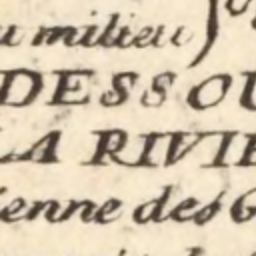 u milieu
DESSOU
LA RIVIE
ienne des G